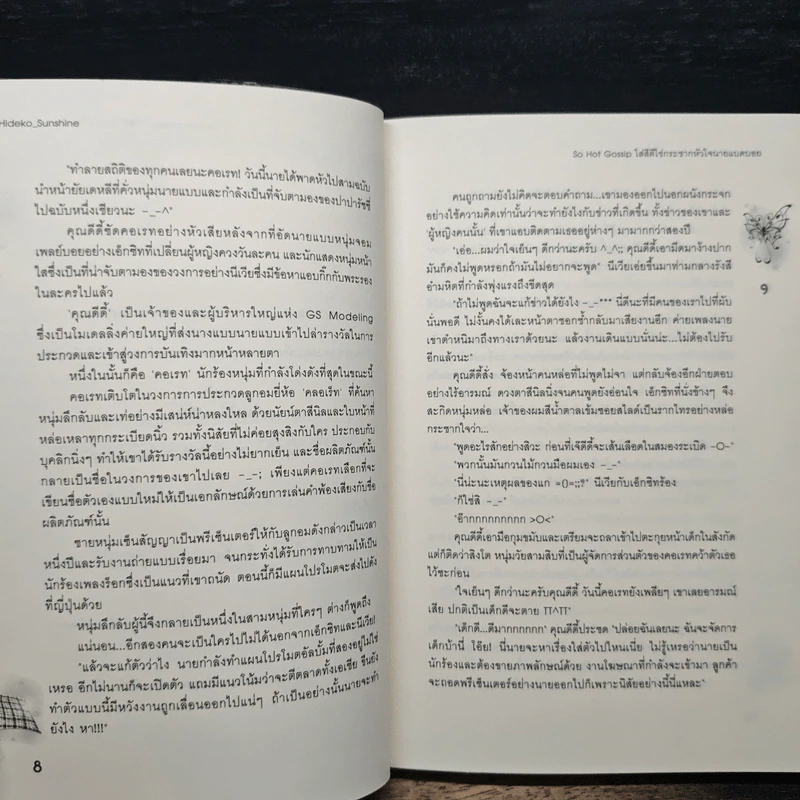 Hideko_Sunshine
"ทำลายสถิติของทุกคนเลยนะคอเรท! วันนี้นายได้พาดหัวไปสามฉบับ
นำหน้ายัยเดหลีที่คั่วหนุ่มนายแบบและกำลังเป็นที่จับตามองของปาปารัซซี่
ไปฉบับหนึ่งเชียวนะ -_-^"
คุณดีดี้ซัดคอเรทอย่างหัวเสียหลังจากที่อัดนายแบบหนุ่มจอม
เพลย์บอยอย่างเอ็กซิทที่เปลี่ยนผู้หญิงควงวันละคน และนักแสดงหนุ่มหน้า
ใสซึ่งเป็นที่น่าจับตามองของวงการอย่างนีเวียซึ่งมีข้อหาแอบกิ๊กกับพระรอง
ในละครไปแล้ว
'คุณดีดี้' เป็นเจ้าของและผู้บริหารใหญ่แห่ง GS Modeling
ซึ่งเป็นโมเดลลิ่งค่ายใหญ่ที่ส่งนางแบบนายแบบเข้าไปล่ารางวัลในการ
ประกวดและเข้าสู่วงการบันเทิงมากหน้าหลายตา
หนึ่งในนั้นก็คือ 'คอเรท' นักร้องหนุ่มที่กำลังโด่งดังที่สุดในขณะนี้
คอเรทเติบโตในวงการการประกวดลูกอมยี่ห้อ 'คลอเร็ท' ที่ค้นหา
หนุ่มลึกลับและเท่อย่างมีเสน่ห์น่าหลงใหล ด้วยนัยน์ตาสีนิลและใบหน้าที่
หล่อเหลาทุกกระเบียดนิ้ว รวมทั้งนิสัยที่ไม่ค่อยสุงสิงกับใคร ประกอบกับ
บุคลิกนิ่งๆ ทำให้เขาได้รับรางวัลนี้อย่างไม่ยากเย็น และชื่อผลิตภัณฑ์นั้น
กลายเป็นชื่อในวงการของเขาไปเลย -_-; เพียงแต่คอเรทเลือกที่จะ
เขียนชื่อตัวเองแบบใหม่ให้เป็นเอกลักษณ์ด้วยการเล่นคำพ้องเสียงกับชื่อ
ผลิตภัณฑ์นั้น
ชายหนุ่มเซ็นสัญญาเป็นพรีเซ็นเตอร์ให้กับลูกอมดังกล่าวเป็นเวลา
หนึ่งปีและรับงานถ่ายแบบเรื่อยมา จนกระทั่งได้รับการทาบทามให้เป็น
นักร้องเพลงร็อกซึ่งเป็นแนวที่เขาถนัด ตอนนี้ก็มีแผนโปรโมตจะส่งไปดัง
ที่ญี่ปุ่นด้วย
หนุ่มลึกลับผู้นี้จึงกลายเป็นหนึ่งในสามหนุ่มที่ใครๆ ต่างก็พูดถึง
แน่นอน...อีกสองคนจะเป็นใครไปไม่ได้นอกจากเอ็กซิทและนีเวีย!
"แล้วจะแก้ตัวว่าไง นายกำลังทำแผนโปรโมตอัลบั้มที่สองอยู่ไม่ใช่
เหรอ อีกไม่นานก็จะเปิดตัว แถมมีแนวโน้มว่าจะตีตลาดทั้งเอเชีย ขืนยัง
ทำตัวแบบนี้มีหวังงานถูกเลื่อนออกไปแน่ๆ ถ้าเป็นอย่างนั้นนายจะทำ
ยังไง หา!!!"
8
So Hot Gossip ใส่สีตีไข่กระชากหัวใจนายแบดบอย
คนถูกถามยังไม่คิดจะตอบคำถาม...เขามองออกไปนอกผนังกระจก
อย่างใช้ความคิดเท่านั้นว่าจะทำยังไงกับข่าวที่เกิดขึ้น ทั้งข่าวของเขาและ
'ผู้หญิงคนนั้น' ที่เขาแอบติดตามเธออยู่ห่างๆ มามากกว่าสองปี
"เอ่อ...ผมว่าใจเย็นๆ ดีกว่านะครับ ^_^;; คุณดีดี้เอามีดมาง้างปาก
มันก็คงไม่พูดหรอกถ้ามันไม่อยากจะพูด" นีเวียเอ่ยขึ้นมาท่ามกลางรังสี
อำมหิตที่กำลังพุ่งแรงถึงขีดสุด
"ถ้าไม่พูดฉันจะแก้ข่าวได้ยังไง -_-*** นี่ดีนะที่มีคนของเราไปที่ผับ
นั่นพอดี ไม่งั้นคงได้เละหน้าตาชอกช้ำกลับมาเสียงานอีก ค่ายเพลงนาย
เขาตำหนิมาถึงทางเราด้วยนะ แล้วงานเดินแบบนั่นน่ะ...ไม่ต้องไปรับ
อีกแล้วนะ"
คุณดีดี้สั่ง จ้องหน้าคนหล่อที่ไม่พูดไม่จา แต่กลับจ้องอีกฝ่ายตอบ
อย่างไร้อารมณ์ ดวงตาสีนิลนิ่งจนคุณดีดี้ยังอ่อนใจ เอ็กซิทที่นั่งข้างๆ จึง
สะกิดหนุ่มหล่อ เจ้าของผมสีน้ำตาลเข้มซอยสไลด์เป็นรากไทรอย่างหล่อ
กระชากใจว่า...
"พูดอะไรสักอย่างสิวะ ก่อนที่เจ๊ดีดี้จะเส้นเลือดในสมองระเบิด -O-"
"พวกนั้นมันกวนไม้กวนมือผมเอง -_-"
"นี่น่ะนะเหตุผลของแก =()=;;?" นีเวียกับเอ็กซิทร้อง
"ก็ใช่สิ -_-"
"อ๊ากกกกกกกกก >O<"
คุณดีดี้เอามือกุมขมับและเตรียมจะถลาเข้าไปตะกุยหน้าเด็กในสังกัด
แต่ก็ติดว่าสิงโต หนุ่มวัยสามสิบที่เป็นผู้จัดการส่วนตัวของคอเรทคว้าตัวเธอ
ไว้ซะก่อน
"ใจเย็นๆ ดีกว่านะครับคุณดีดี้ วันนี้คอเรทยังเพลียๆ เขาเลยอารมณ์
เสีย ปกติเป็นเด็กดีจะตาย TT^TT"
"เด็กดี...ดีมากกกกกกก" คุณดีดี้ประชด "ปล่อยฉันเลยนะ ฉันจะจัดการ
เด็กบ้านี่ โอ๊ย! นี่นายจะหาเรื่องใส่ตัวไปไหนเนี่ย ไม่รู้เหรอว่านายเป็น
นักร้องและต้องขายภาพลักษณ์ด้วย งานโฆษณาที่กำลังจะเข้ามา ลูกค้า
จะถอดพรีเซ็นเตอร์อย่างนายออกไปก็เพราะนิสัยอย่างนี้นี่แหละ"
9